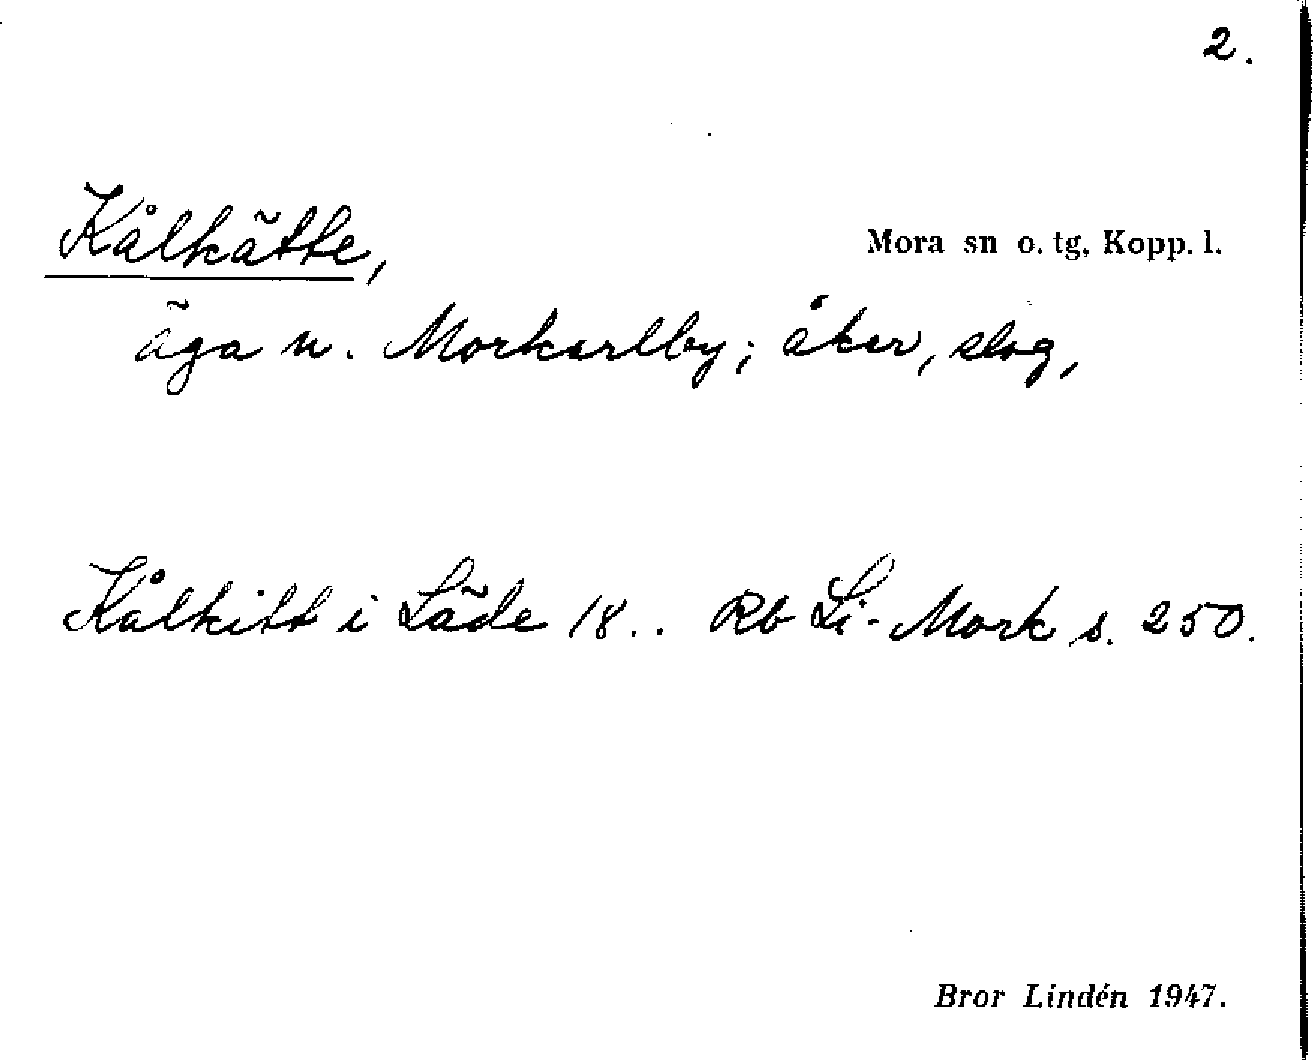 2.
Kålkätte,
Mora sn o. tg, Kopp. l.
äga n. Morkarlby; åker, slog,
Kålkitt i Läde 18.. Rb Li-Mork s. 250.
Bror Lindén 1947.